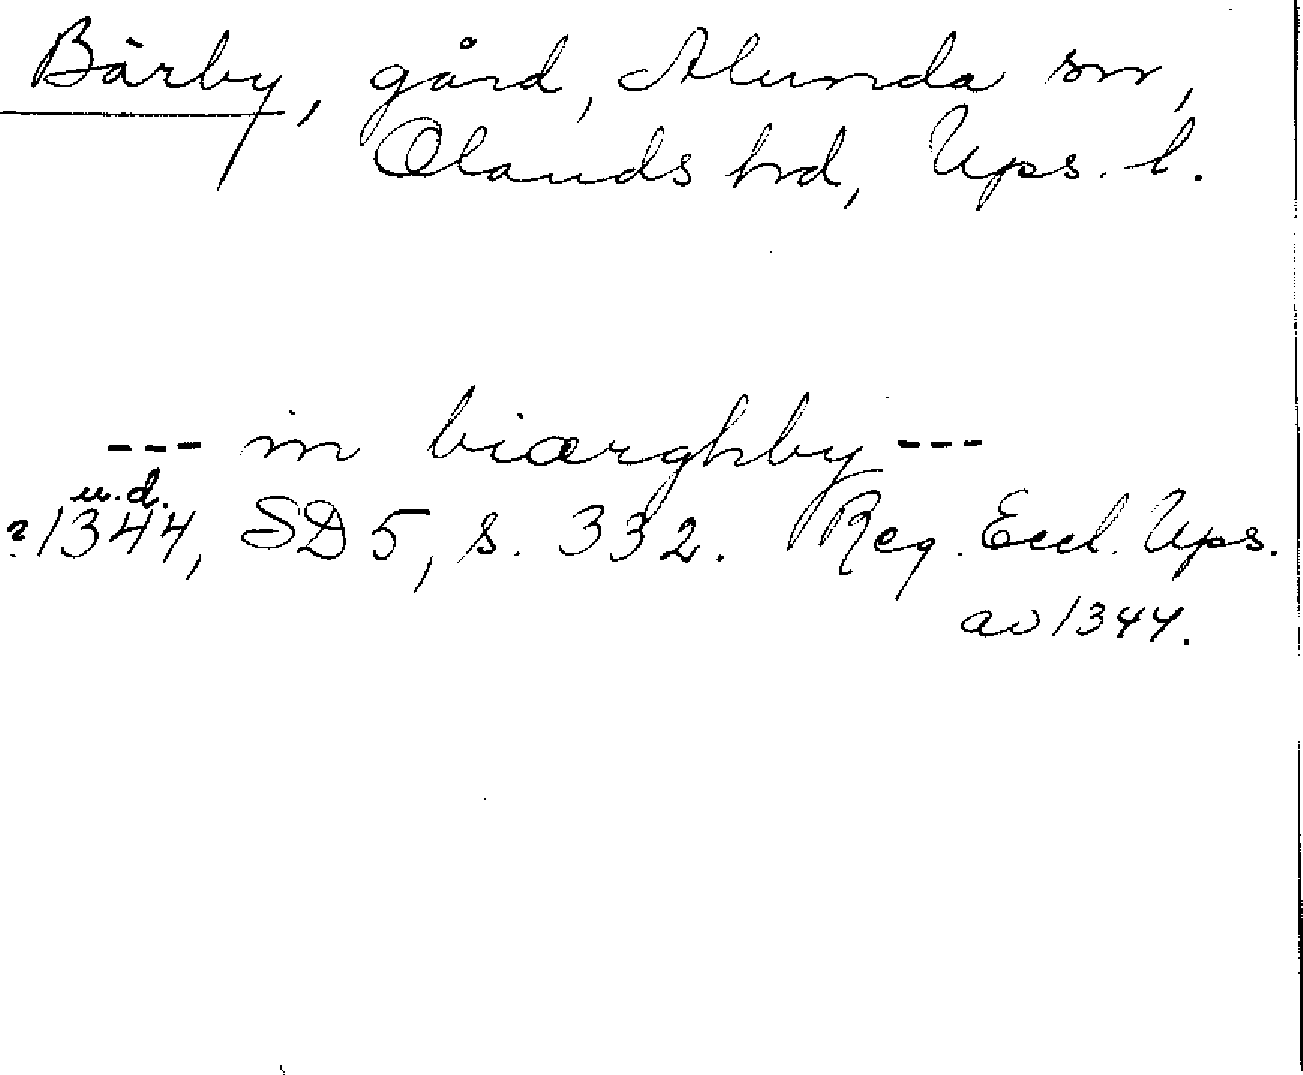 Bärby, gård, Alunda sn,
Olands hrd, Ups. l.
--- in biærghby ---
u.d.
?1344, SD 5, s. 332. Reg. Eccl. Ups.
av 1344.